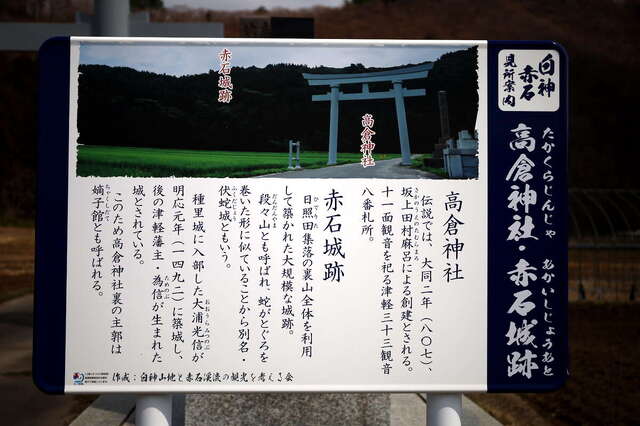 白神
赤石
見所案内
たかくらじんじゃ
あかいしじょうあと
高倉神社・赤石城跡
赤石城跡
高倉神社
高倉神社
伝説では、大同二年(八〇七)、
さかのうえのたむらまろ
坂上田村麻呂による創建とされる。
十一面観音を祀る津軽三十三観音
八番札所。
赤石城跡
ひでりた
日照田集落の裏山全体を利用
して築かれた大規模な城跡。
だんだんやま
段々山とも呼ばれ、蛇がとぐろを
巻いた形に似ていることから別名・
ふくだじょう
伏蛇城ともいう。
おおうらみつのぶ
種里城に入部した大浦光信が
明応元年(一四九二)に築城し、
ためのぶ
後の津軽藩主・為信が生まれた
城とされている。
このため高倉神社裏の主郭は
ちゃくしだて
嫡子館とも呼ばれる。
作成:白神山地と赤石渓流の観光を考える会